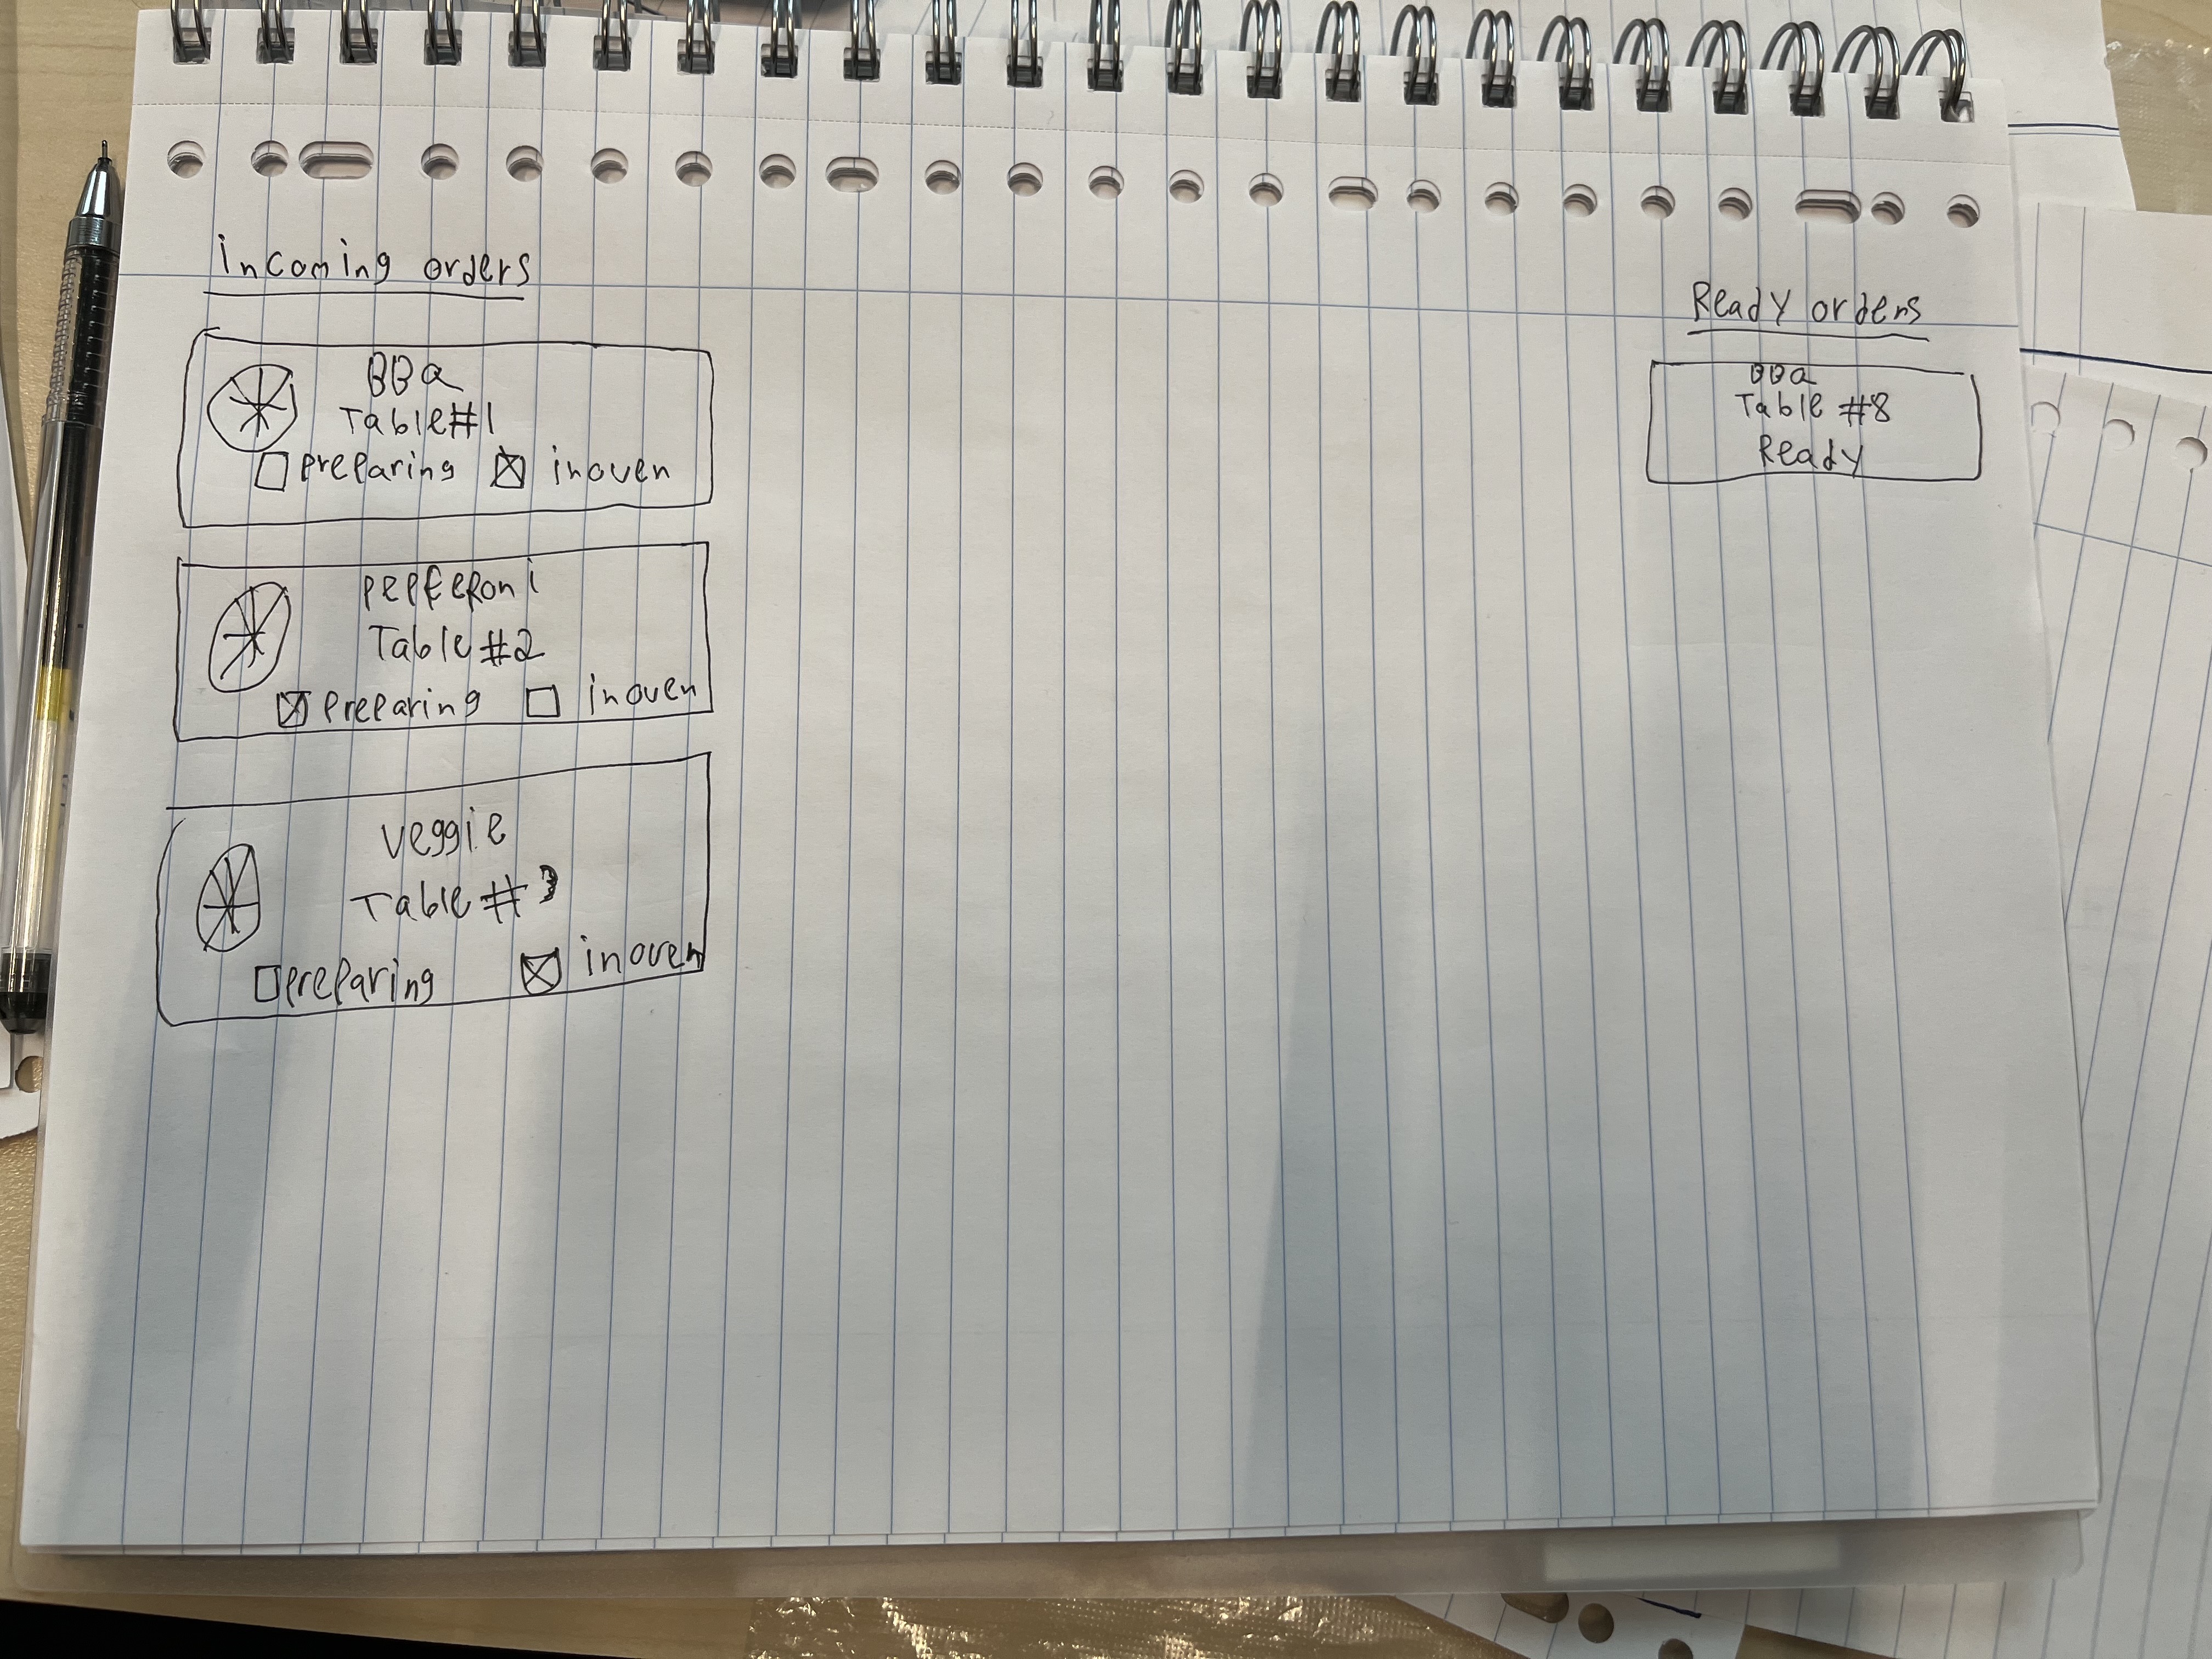 incoming orders
BBQ
Table#1
preparing inoven
pepperoni
Table #2
preparing inoven
veggie
Table #3
preparing inoven
Ready orders
BBQ
Table #8
Ready